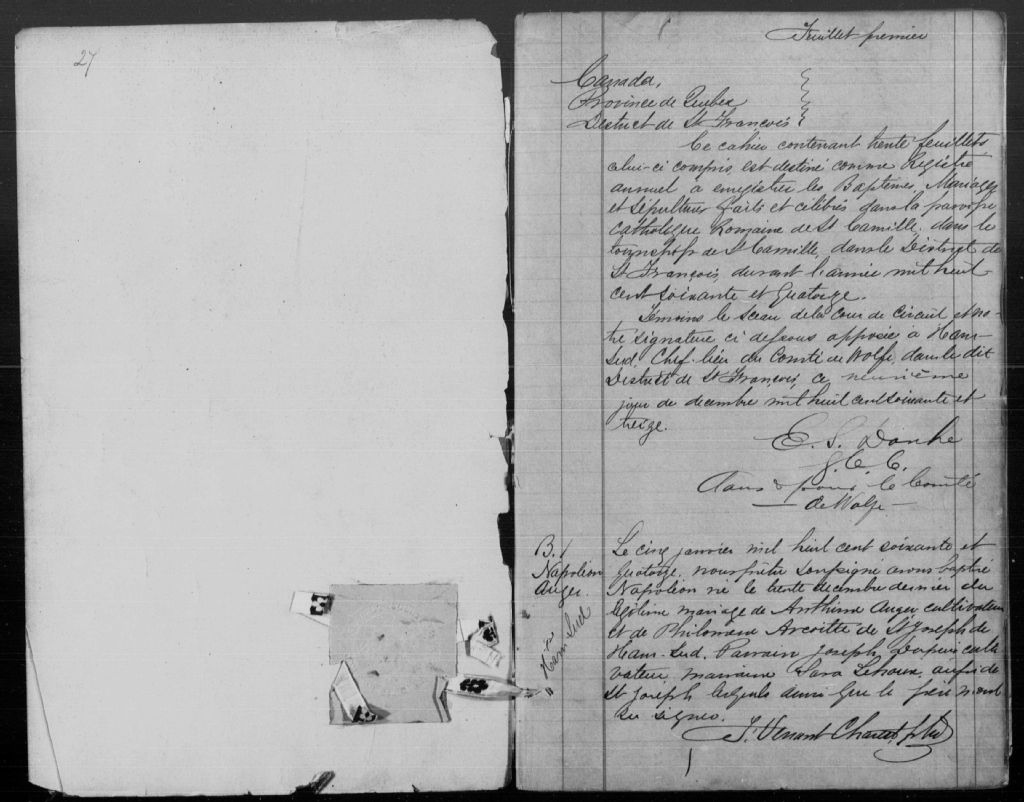 27
Feuillet premier
Canada,
Province de Quebec
District de St François
Ce cahier contenant trente feuillets,
celui-ci compris, est destiné comme Registre
annuel à enregistrer les Baptêmes, Mariages
et Sépultures faits et célébrés dans la paroisse
catholique Romaine de St Camille, dans le
township de St Camille, dans le District de
St François, durant l'année mil huit
cent soixante et Quatorze.
Témoins le sceau de la cour de circuit et no-
tre signature ci dessous apposée à Ham-
Sud, Chef-lieu du Comté de Wolfe, dans le dit
District de St François, ce neuvième
jour de decembre mil huit cent soixante et
treize.
E. S. Darche
G. C. C.
dans & pour le Comté
de Wolfe
B. 1
Napoléon
Auger.
Ham Sud
Le cinq janvier mil huit cent soixante et
Quatorze, nous prêtre soussigné avons baptisé
Napoléon né le trente decembre dernier du
légitime mariage de Anthime Auger cultivateur
et de Philomène de St Joseph de
Ham-Sud. Parrain Joseph Dupuis culti
vateur, marraine Sara Lehoux, aussi de
St Joseph lesquels ainsi que le père n'ont
su signer.
J. Venant Charest, Ptre